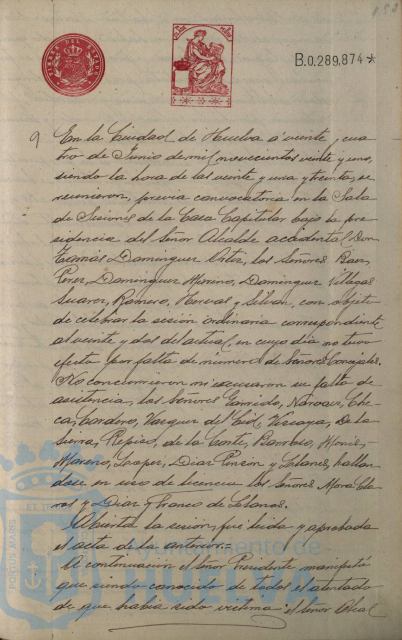 153
B.0.289,874*
TIMBRE DEL ESTADO
9 En la Ciudad de Huelva a veinte y cua
tro de Junio de mil novecientos veinte y uno,
siendo la hora de las veinte y una y treinta, se
reunieron, previa convocatoria en la Sala
de Sesiones de la Casa Capitular bajo la pre
sidencia del Señor Alcalde accidental Don
Tomás Dominguez Ortiz, los Señores Baez,
Perez, Dominguez Moreno, Dominguez Villegas
Suarez, Romero, Hervas y Silvan, con objeto
de celebrar la sesión ordinaria correspondiente
al veinte y dos del actual, en cuyo dia no tuvo
efecto por falta de número de Señores Concejales.
No concurrieron ni excusaron su falta de
asistencia, los Señores Garrido, Narvaez, Che
ca, Cordero, Vazquez del Cid, Vizcaya, De la
Sierra, Repiso, de la Corte, Barroso, Monis,
Moreno, Lopez, Diaz Pinzon y Llanes, hallan
dose en uso de licencia los Señores Mora Cla
ros y Diaz y Franco de Llanos.
Abierta la sesión, fué leida y aprobada
el acta de la anterior.=
A continuación el Señor Presidente manifestó
que siendo conocido de todos el atentado
de que habia sido victima el Señor Alcal
Ayuntamiento de
HUELVA
PORTUS MARIS